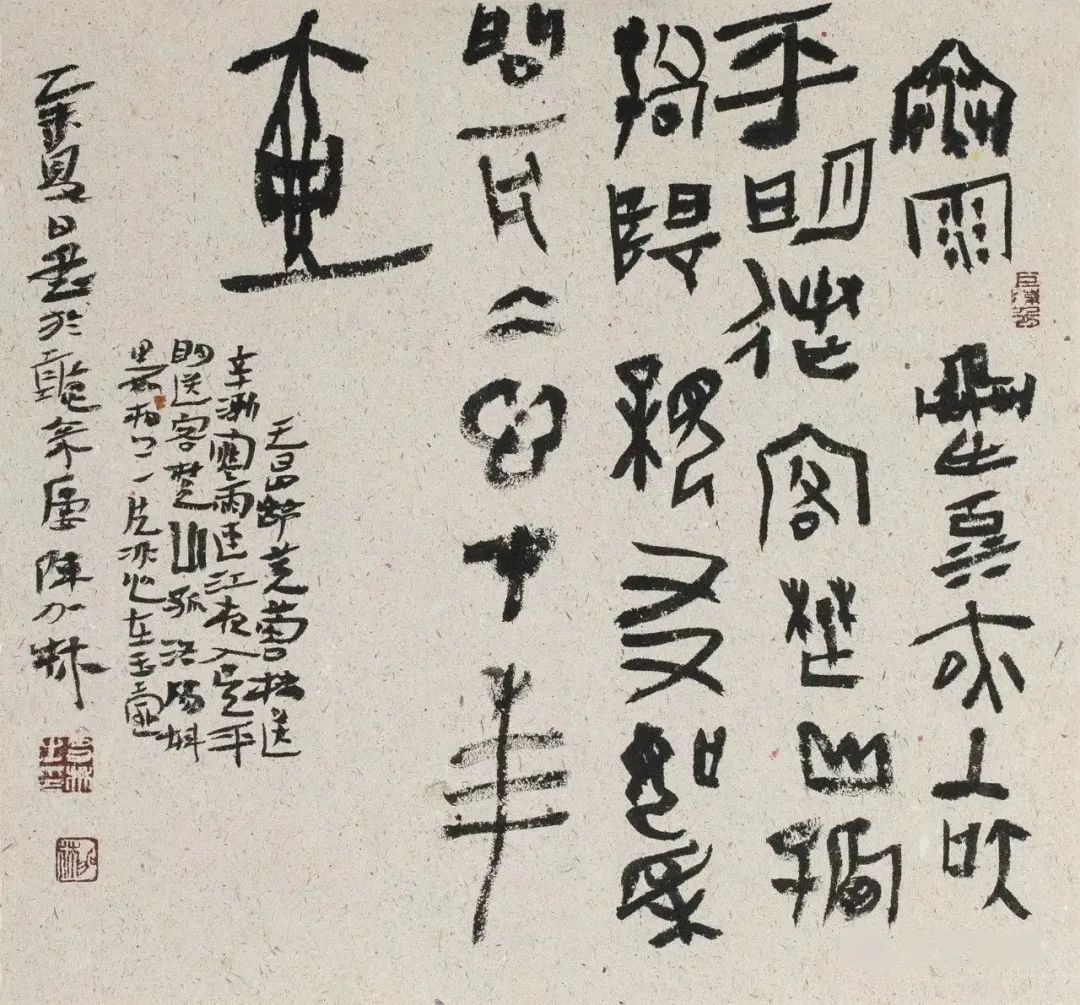 寒雨連江夜入吳
平明送客楚山孤
洛陽親友如相
問一片冰心在玉
壺
王昌齡芙蓉樓送
辛漸寒雨連江夜入吳平
明送客楚山孤洛陽親
友如相問一片冰心在玉壺
乙未夏日書於陳加林